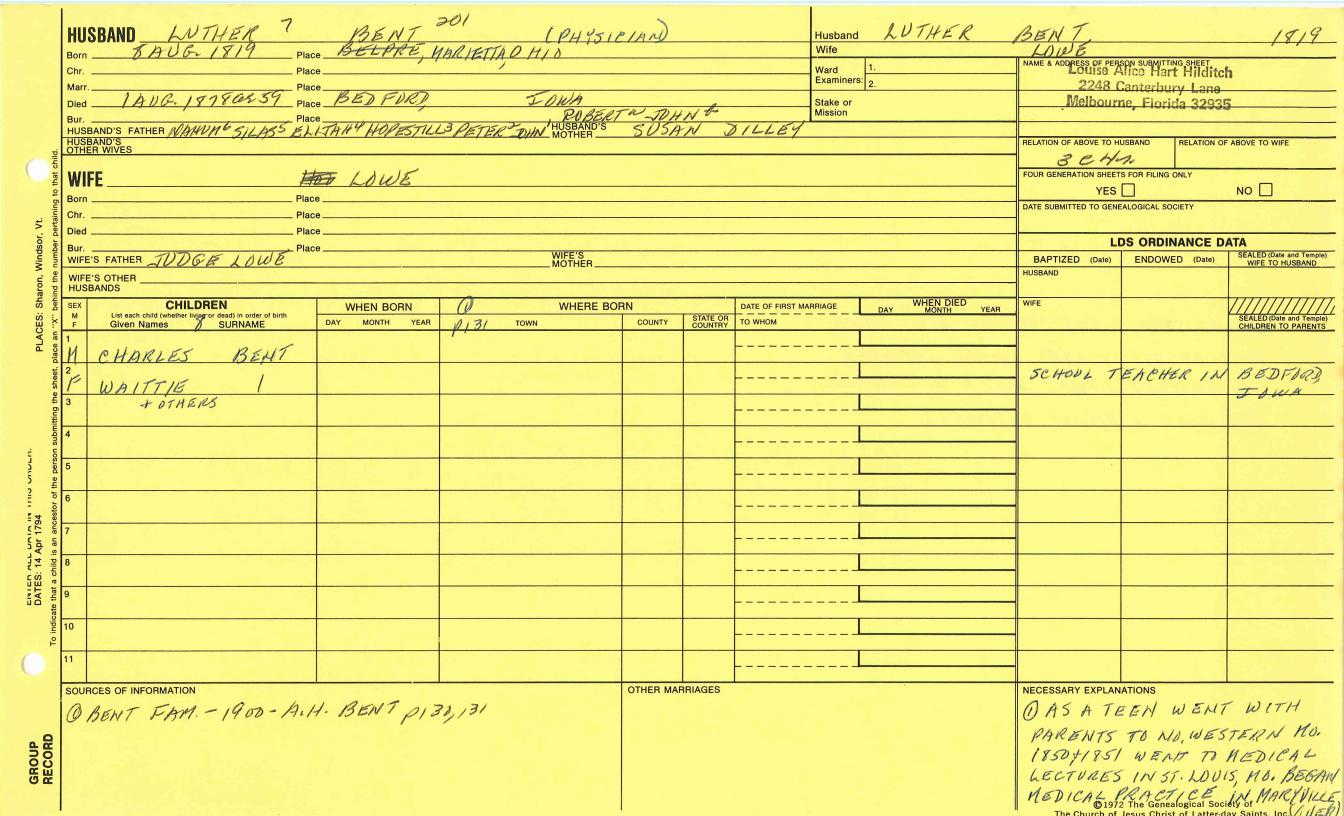 HUSBAND LUTHER 7 BENT 201 (PHYSICIAN)
Born 8 AUG. 1819 Place BELPRE, MARIETTA, OHIO
Chr. Place
Marr. Place
Died 1 AUG. 1878 Æ 59 Place BEDFORD, IOWA
Bur. Place ROBERT² JOHN¹
HUSBAND'S FATHER NAHUM⁶ SILAS⁵ ELIJAH⁴ HOPESTILL³ PETER² JOHN¹ HUSBAND'S MOTHER SUSAN DILLEY
HUSBAND'S OTHER WIVES
WIFE LOWE
Born Place
Chr. Place
Died Place
Bur. Place
WIFE'S FATHER JUDGE LOWE WIFE'S MOTHER
WIFE'S OTHER HUSBANDS
Husband LUTHER BENT 1819
Wife LOWE
Ward Examiners: 1.
2.
Stake or Mission
NAME & ADDRESS OF PERSON SUBMITTING SHEET
Louise Alice Hart Hilditch
2248 Canterbury Lane
Melbourne, Florida 32935
RELATION OF ABOVE TO HUSBAND RELATION OF ABOVE TO WIFE
3C4R
FOUR GENERATION SHEETS FOR FILING ONLY
YES NO
DATE SUBMITTED TO GENEALOGICAL SOCIETY
LDS ORDINANCE DATA
BAPTIZED (Date) ENDOWED (Date) SEALED (Date and Temple) WIFE TO HUSBAND
HUSBAND
WIFE
SEALED (Date and Temple) CHILDREN TO PARENTS
SEX M F
CHILDREN
List each child (whether living or dead) in order of birth
Given Names 8 SURNAME
WHEN BORN
DAY MONTH YEAR
① p131
WHERE BORN
TOWN COUNTY STATE OR COUNTRY
DATE OF FIRST MARRIAGE
TO WHOM
WHEN DIED
DAY MONTH YEAR
1 M CHARLES BENT
2 F WAITTIE | SCHOOL TEACHER IN BEDFORD, IOWA
3 + OTHERS
4
5
6
7
8
9
10
11
SOURCES OF INFORMATION
① BENT FAM. - 1900 - A.H. BENT p130,131
OTHER MARRIAGES
NECESSARY EXPLANATIONS
① AS A TEEN WENT WITH
PARENTS TO NO. WESTERN MO.
1850+1851 WENT TO MEDICAL
LECTURES IN ST. LOUIS, MO. BEGAN
MEDICAL PRACTICE IN MARYVILLE
(OVER)
©1972 The Genealogical Society of
The Church of Jesus Christ of Latter-day Saints, Inc.
PLACES: Sharon, Windsor, Vt.
ENTER ALL DATA IN THIS ORDER:
DATES: 14 Apr 1794
To indicate that a child is an ancestor of the person submitting the sheet, place an "X" behind the number pertaining to that child.
GROUP RECORD